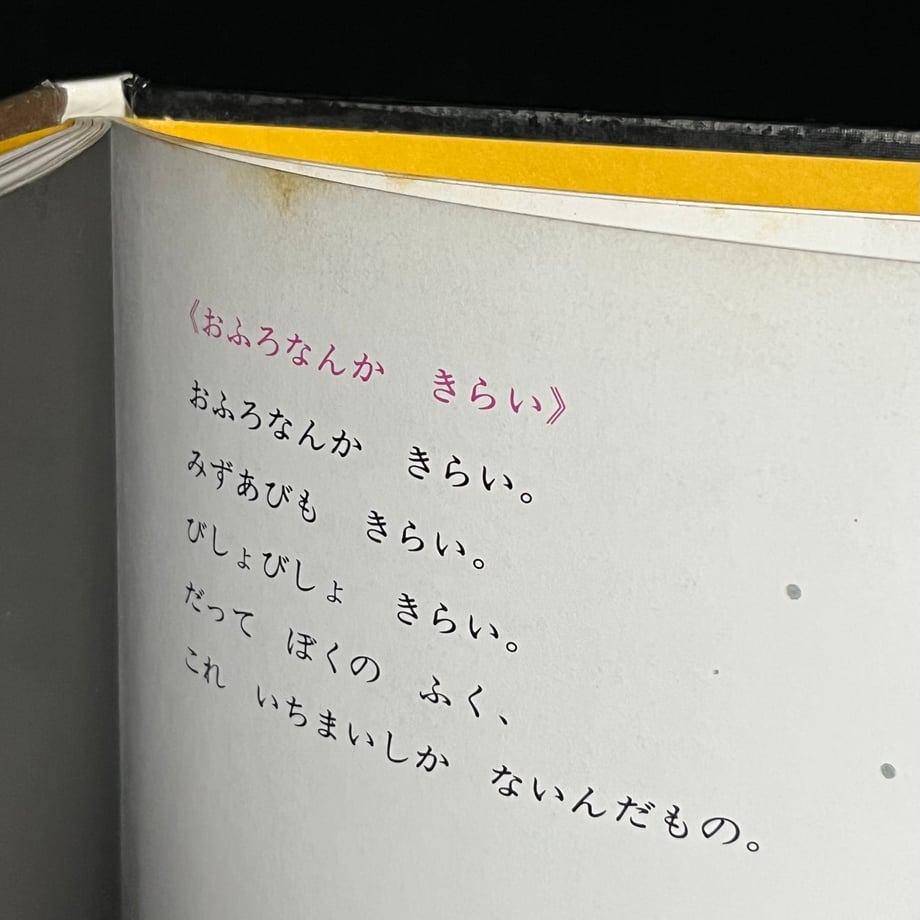 《おふろなんか　きらい》
おふろなんか　きらい。
みずあびも　きらい。
びしょびしょ　きらい。
だって　ぼくの　ふく、
これ　いちまいしか　ないんだもの。